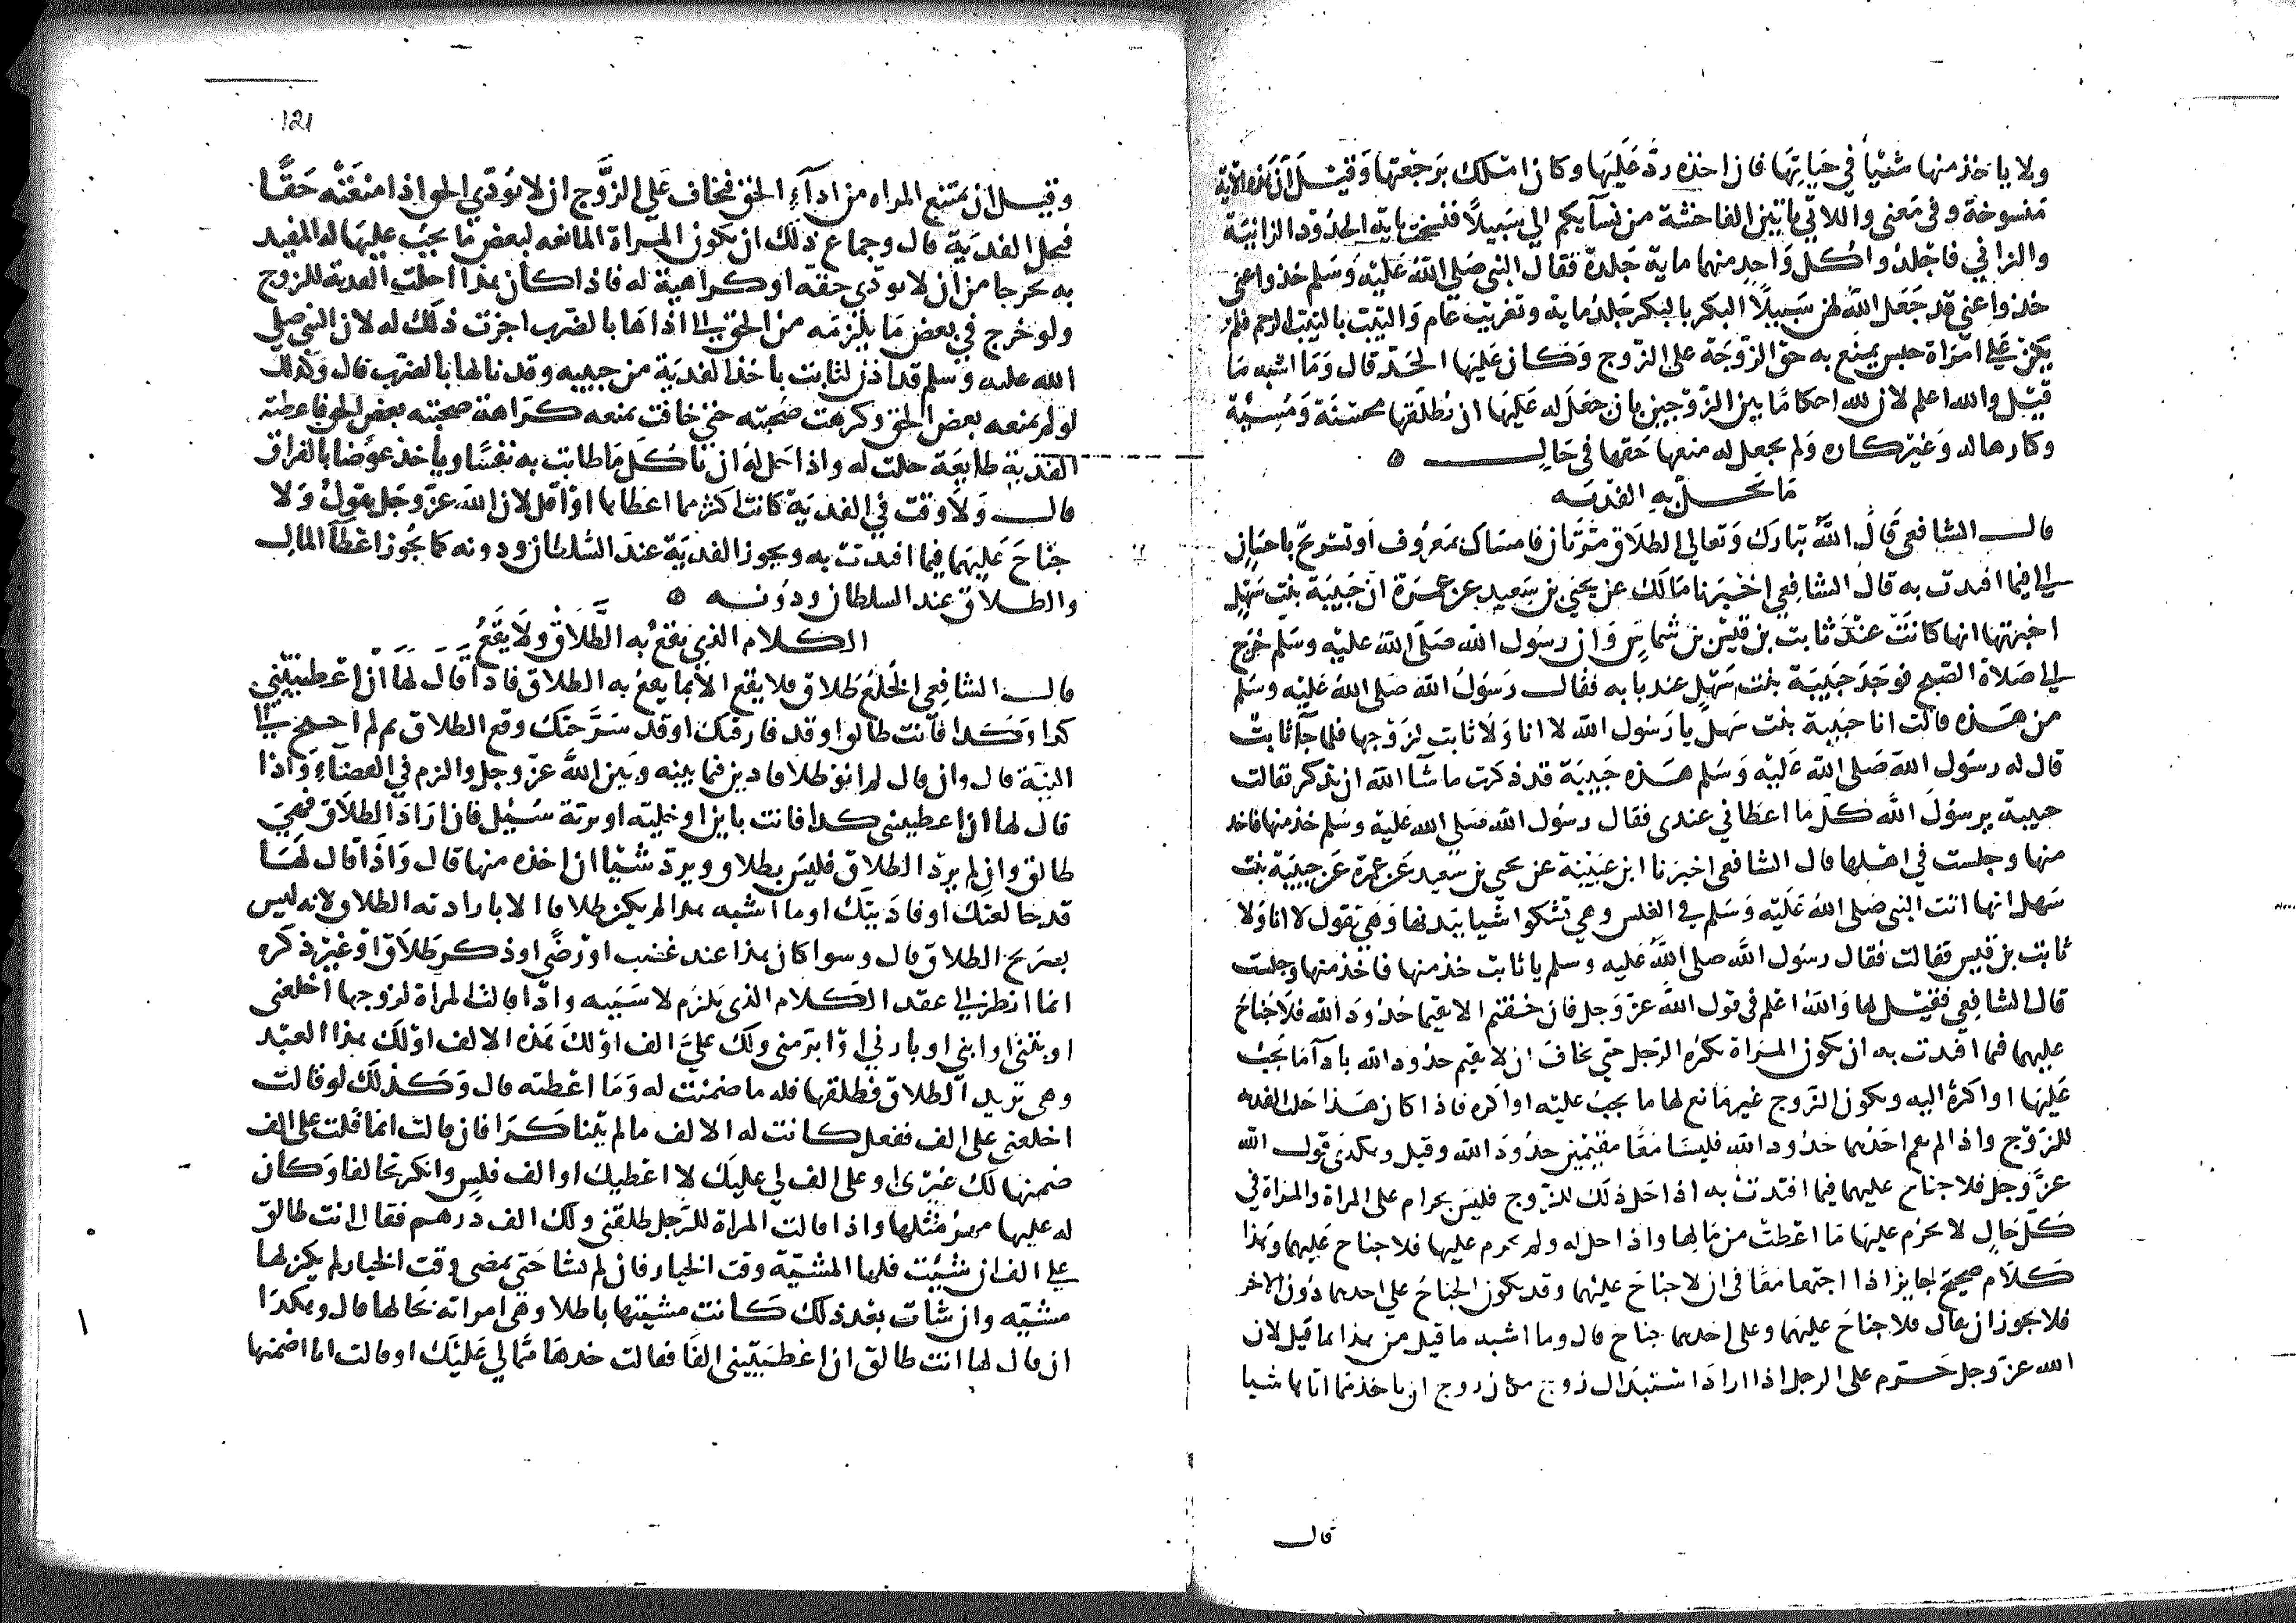 ولا ياخذ منها شيئا في حياتها فان اخذه رد عليها وكان املك برجعتها وقيل ان هذه الاية
منسوخة وفي معنى واللاتي ياتين الفاحشة من نسآيكم الي سبيلا فنسخت باية الحدود الزانية
والزاني فاجلدوا كل واحد منهما ماية جلدة فقال النبي صلى الله عليه وسلم خذوا عني
خذوا عني قد جعل الله لهن سبيلا البكر بالبكر جلد ماية وتغريب عام والثيب بالثيب الرجم فلم
يكن علي امراة حبس يمنع به حق الزوجة على الزوج وكان عليها الحد قال وما اشبه ما
قيل والله اعلم لان لله احكاما بين الزوجين بان جعل له عليها ان يطلقها محسنة ومسيئة
وكارها له وغير كاره ولم يجعل له منعها حقها في حال ه
ما تحل به الفدية
قال الشافعي قال الله تبارك وتعالى الطلاق مرتان فامساك بمعروف او تسريح باحسان
الي فيما افتدت به قال الشافعي اخبرنا مالك عن يحيى بن سعيد عن عمرة ان حبيبة بنت سهل
اخبرتها انها كانت عند ثابت بن قيس بن شماس وان رسول الله صلى الله عليه وسلم خرج
الي صلاة الصبح فوجد حبيبة بنت سهل عند بابه فقال رسول الله صلى الله عليه وسلم
من هذه قالت انا حبيبة بنت سهل يا رسول الله لا انا ولا ثابت لزوجها فلما جآ ثابت
قال له رسول الله صلى الله عليه وسلم هذه حبيبة قد ذكرت ما شآ الله ان تذكر فقالت
حبيبة يرسول الله كل ما اعطاني عندي فقال رسول الله صلى الله عليه وسلم خذ منها فاخذ
منها وجلست في اهلها قال الشافعي اخبرنا ابن عيينة عن يحيى بن سعيد عن عمرة عن حبيبة بنت
سهل انها اتت النبي صلى الله عليه وسلم في الغلس وهي تشكوا شيا ببدنها وهي تقول لا انا ولا
ثابت بن قيس فقالت فقال رسول الله صلى الله عليه وسلم يا ثابت خذ منها فاخذ منها وجلست
قال الشافعي فقيل لها والله اعلم في قول الله عز وجل فان خفتم الا يقيما حدود الله فلا جناح
عليهما فيما افتدت به ان تكون المراة تكره الرجل حتى تخاف ان لا تقيم حدود الله بادآ ما يجب
عليها او اكثره اليه ويكون الزوج غير مانع لها ما يجب عليه او اكثره فاذا كان هذا حلت الفدية
للزوج واذا لم يقم احدهما حدود الله فليسا معا مقيمين حدود الله وقيل وهكذى قول الله
عز وجل فلا جناح عليهما فيما افتدت به اذا حل ذلك للزوج فليس بحرام على المراة والمراة في
كل حال لا يحرم عليها ما اعطت من مالها واذا حل له ولم يحرم عليها فلا جناح عليهما وهذا
كلام صحيح جايز اذا اجتمعا معا في ان لا جناح عليهما وقد يكون الجناح علي احدهما دون الاخر
فلا يجوز ان يقال فلا جناح عليهما وعلى احدهما جناح قال وما اشبه ما قيل من هذا بما قيل لان
الله عز وجل حرم على الرجل اذا اراد استبدال زوج مكان زوج ان ياخذ مما اتاها شيا
قال
121
وقيل ان تمتنع المراه من ادآء الحق فتخاف علي الزوج ان لا يؤدي الحق اذا منعته حقا
فتحل الفدية قال وجماع ذلك ان تكون المراة المانعه لبعض ما يجب عليها له المفتدية
به تحرجا من ان لا تودي حقه او كراهية له فاذا كان هذا احلت الفدية للزوج
ولو خرج في بعض ما يلزمه من الحق الي اذاها بالضرب اجزت ذلك له لان النبي صلى
الله عليه وسلم قد اذن لثابت باخذ الفدية من حبيبه وقد نالها بالضرب قال وكذلك
لو لم تمنعه بعض الحق وكرهت صحبته حتى خافت تمنعه كراهة صحبته بعض الحق فاعطته
الفدية طايعة حلت له واذا حل له ان ياكل ما طابت به نفسا وياخذ عوضا بالفراق
قال ولا وقت في الفدية كانت اكثر مما اعطاها او اقل لان الله عز وجل يقول ولا
جناح عليهما فيما افتدت به ويجوز الفدية عند السلطان ودونه كما يجوز اعطآ المال
والطلاق عند السلطان ودونه ه
الكلام الذي يقع به الطلاق ولا يقع
قال الشافعي الخلع طلاق فلا يقع الا بما يقع به الطلاق فاذا قال لها ان اعطيتيني
كذا وكذا فانت طالق او قد فارقتك او قد سرحتك وقع الطلاق ثم لم احتج الي
النية قال وان قال لم انو طلاقا دين فيما بينه وبين الله عز وجل والزم في القضآء واذا
قال لها ان اعطيتني كذا فانت باين او خلية او برية سئل فان اراد الطلاق فهي
طالق وان لم يرد الطلاق فليس بطلاق ويرد شيا ان اخذه منها قال واذا قال لها
قد خالعتك او فاديتك او ما اشبه هذا لم يكن طلاقا الا بارادته الطلاق لانه ليس
بصريح الطلاق قال وسوا كان هذا عند غضب او رضى او ذكر طلاق او غير ذكره
انما انظر الي عقد الكلام الذي يلزم لا سببه واذا قالت المراة لزوجها اخلعني
او بتني او ابني او بارني او ابر مني ولك علي الف او لك هذه الالف او لك هذا العبد
وهي تريد الطلاق فطلقها فله ما ضمنت له وما اعطته قال وكذلك لو قالت
اخلعني على الف ففعل كانت له الالف ما لم يتناكرا فان قالت انما قلت على الف
ضمنها لك غيري او على الف لي عليك لا اعطيك او الف فلس وانكر تحالفا وكان
له عليها مهر مثلها واذا قالت المراة للرجل طلقني ولك الف درهم فقال انت طالق
علي الف ان شئت فلها المشيّة وقت الخيار فان لم تشا حتى يمضى وقت الخيار لم يكن لها
مشيّه وان شات بعد ذلك كانت مشيتها باطلا وهي امراته بحالها قال وهكذا
ان قال لها انت طالق ان اعطيتيني الفا فقالت خذها مما لي عليك او قالت انا اضمنها